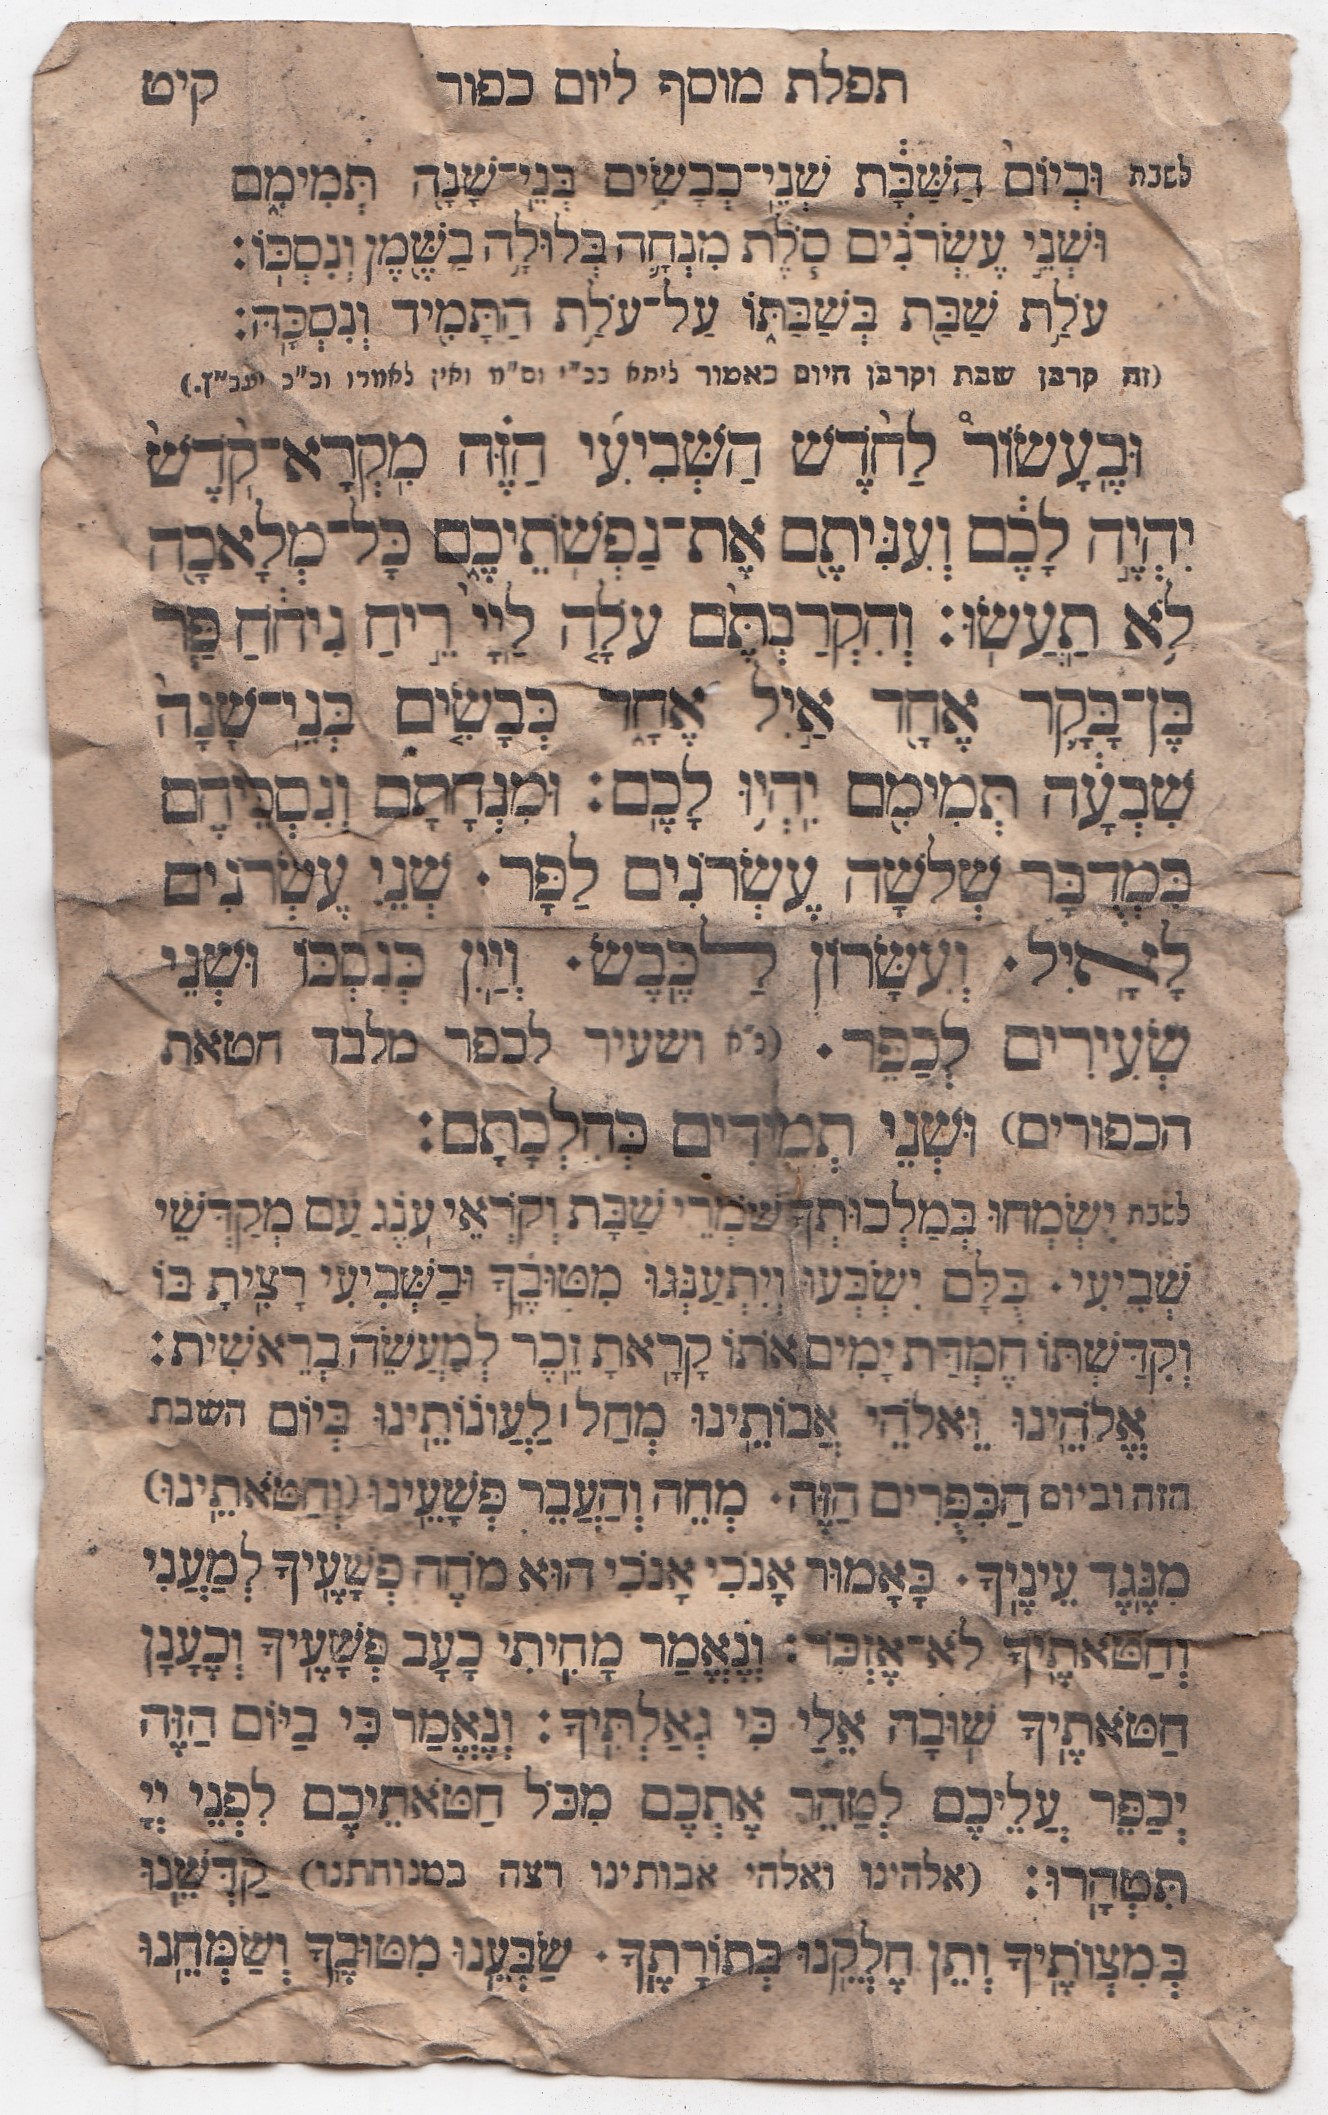 תפלת מוסף ליום כפור קיט
לשבת וּבְיוֹם הַשַּׁבָּת שְׁנֵי־כְבָשִׂים בְּנֵי־שָׁנָה תְּמִימִם
וּשְׁנֵי עֶשְׂרֹנִים סֹלֶת מִנְחָה בְּלוּלָה בַשֶּׁמֶן וְנִסְכּוֹ׃
עֹלַת שַׁבַּת בְּשַׁבַּתּוֹ עַל־עֹלַת הַתָּמִיד וְנִסְכָּהּ׃
(זה קרבן שבת וקרבן היום כאמור ליתא בכ״י וס״ח ואין לאמרו וכ״כ יעב״ץ.)
וּבֶעָשׂוֹר לַחֹדֶשׁ הַשְּׁבִיעִי הַזֶּה מִקְרָא־קֹדֶשׁ
יִהְיֶה לָכֶם וְעִנִּיתֶם אֶת־נַפְשֹׁתֵיכֶם כָּל־מְלָאכָה
לֹא תַעֲשׂוּ׃ וְהִקְרַבְתֶּם עֹלָה לַיְיָ רֵיחַ נִיחֹחַ פַּר
בֶּן־בָּקָר אֶחָד אַיִל אֶחָד כְּבָשִׂים בְּנֵי־שָׁנָה
שִׁבְעָה תְּמִימִם יִהְיוּ לָכֶם׃ וּמִנְחָתָם וְנִסְכֵּיהֶם
כִּמְדֻבָּר שְׁלֹשָׁה עֶשְׂרֹנִים לַפָּר· שְׁנֵי עֶשְׂרֹנִים
לָאָיִל· וְעִשָּׂרוֹן לַכֶּבֶשׂ· וְיַיִן כְּנִסְכּוֹ וּשְׁנֵי
שְׂעִירִים לְכַפֵּר· (נ״א ושעיר לכפר מלבד חטאת
הכפורים) וּשְׁנֵי תְמִידִים כְּהִלְכָתָם׃
לשבת יִשְׂמְחוּ בְמַלְכוּתְךָ שׁמְרֵי שַׁבָּת וְקֹרְאֵי עֹנֶג עַם מְקַדְּשֵׁי
שְׁבִיעִי· כֻּלָּם יִשְׂבְּעוּ וְיִתְעַנְּגוּ מִטּוּבֶךָ וּבַשְּׁבִיעִי רָצִיתָ בּוֹ
וְקִדַּשְׁתּוֹ חֶמְדַּת יָמִים אֹתוֹ קָרָאתָ זֵכֶר לְמַעֲשֵׂה בְרֵאשִׁית׃
אֱלֹהֵינוּ וֵאלֹהֵי אֲבוֹתֵינוּ מְחַל׀ לַעֲוֹנוֹתֵינוּ בְּיוֹם השבת
הזה וביום הַכִּפֻּרִים הַזֶּה· מְחֵה וְהַעֲבֵר פְּשָׁעֵינוּ (וְחַטֹּאתֵינוּ)
מִנֶּגֶד עֵינֶיךָ· כָּאָמוּר אָנֹכִי אָנֹכִי הוּא מֹחֶה פְשָׁעֶיךָ לְמַעֲנִי
וְחַטֹּאתֶיךָ לֹא־אֶזְכֹּר׃ וְנֶאֱמַר מָחִיתִי כָעָב פְּשָׁעֶיךָ וְכֶעָנָן
חַטֹּאתֶיךָ שׁוּבָה אֵלַי כִּי גְאַלְתִּיךָ׃ וְנֶאֱמַר כִּי בַיּוֹם הַזֶּה
יְכַפֵּר עֲלֵיכֶם לְטַהֵר אֶתְכֶם מִכֹּל חַטֹּאתֵיכֶם לִפְנֵי יְיָ
תִּטְהָרוּ׃ (אלהינו ואלהי אבותינו רצה במנוחתנו) קַדְּשֵׁנוּ
בְּמִצְוֹתֶיךָ וְתֵן חֶלְקֵנוּ בְּתוֹרָתֶךָ· שַׂבְּעֵנוּ מִטּוּבֶךָ וְשַׂמְּחֵנוּ